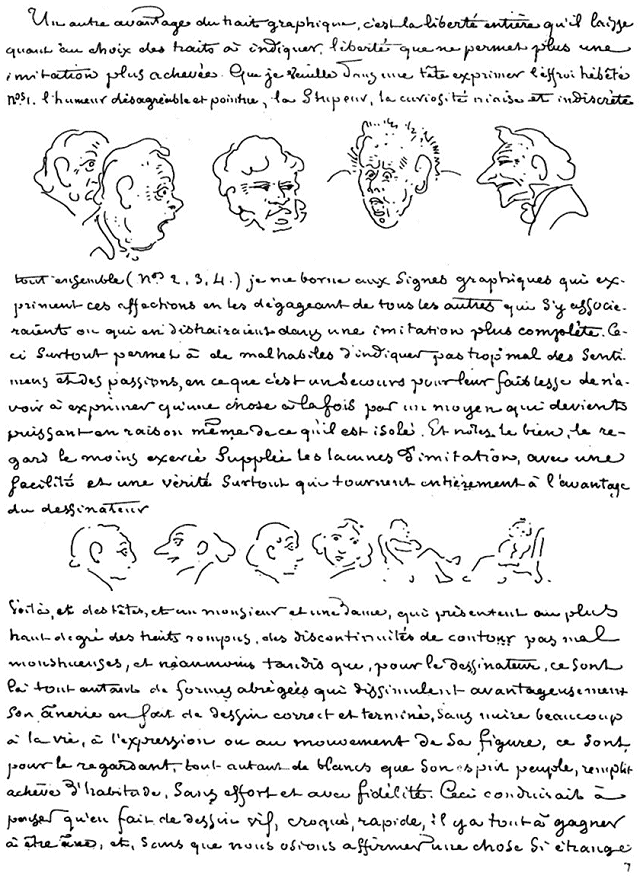 Un autre avantage du trait graphique, c'est la liberté entière qu'il laisse
quant au choix des traits à indiquer, liberté que ne permet plus une
imitation plus achevée. Que je veuille dans une tête exprimer l'effroi hébété
Nos 1. l'humeur désagréable et pointue, la stupeur, la curiosité niaise et indiscrète
tout ensemble (Nos 2, 3, 4.) je me borne aux signes graphiques qui ex-
priment ces affections en les dégageant de tous les autres qui s'y associe-
raient ou qui en distrairaient dans une imitation plus complète. Ce-
ci surtout permet à de malhabiles d'indiquer pas trop mal des senti-
mens et des passions, en ce que c'est un secours pour leur faiblesse de n'a-
voir à exprimer qu'une chose à la fois par un moyen qui devient
puissant en raison même de ce qu'il est isolé. Et notez le bien, le re-
gard le moins exercé supplée les lacunes d'imitation, avec une
facilité et une vérité surtout qui tournent entièrement à l'avantage
du dessinateur
Voilà, et des têtes, et un monsieur et une dame, qui présentent au plus
haut degré des traits rompus, des discontinuités de contour pas mal
monstrueuses, et néanmoins tandis que, pour le dessinateur, ce sont
là tout autant de formes abrégées qui dissimulent avantageusement
son ânerie en fait de dessin correct et terminé, sans nuire beaucoup
à la vie, à l'expression ou au mouvement de sa figure, ce sont,
pour le regardant, tout autant de blancs que son esprit peuple, remplit
achève d'habitude, sans effort et avec fidélité. Ceci conduirait à
penser qu'en fait de dessin vif, croqué, rapide, il y a tout à gagner
à être âne, et, sans que nous osions affirmer une chose si étrange
7